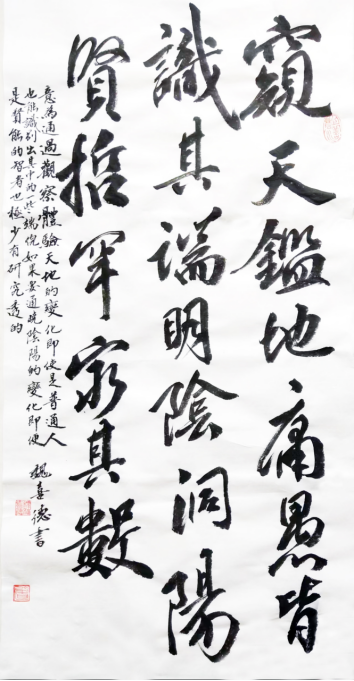 窺天鑑地庸愚皆
識其端明陰洞陽
賢哲罕窮其數
意為通過觀察體驗天地的變化即使是普通人
也能識別出其中的一些端倪如果要通曉陰陽的變化即便
是賢能的智者也極少有研究透的
魏喜德書